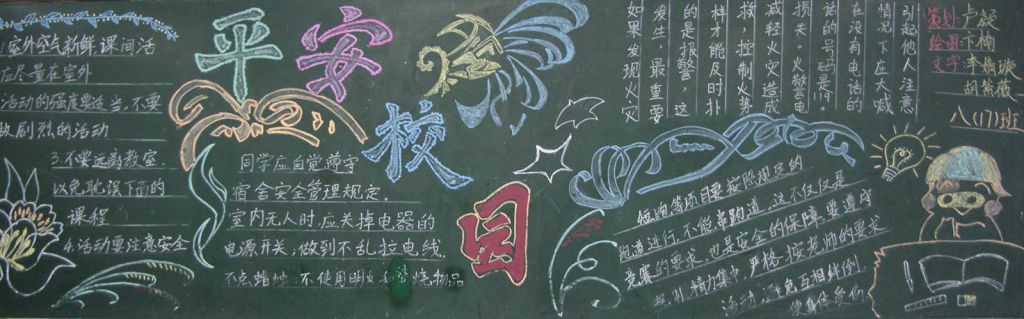 平安校园
1.室外空气新鲜课间活
应尽量在室外
活动的强度要适当,不要
做剧烈的活动
3.不要远离教室,
以免耽误下面的
课程
4.活动要注意安全
同学应自觉遵守
宿舍安全管理规定。
室内无人时,应关掉电器的
电源开关,做到不乱拉电线,
不点蜡烛,不使用明火 烧物品
如果发现火灾
发生,最重要
的是报警,这
样才能及时扑
救,控制火势
减轻火灾造成
损失。火警电
话的号码是。
在没有电话的
情况下,应大喊
引起他人注意
短跑等项目要按照规定的
跑道进行,不能串跑道。这不仅仅是
竞赛的要求,也是安全的保障。要遵守
精力集中,严格按老师的要求
活动,避免互相绊倒
使身体受伤
策划:卢
绘图:卞楠
文字:李 璇
胡紫薇
八(17)班